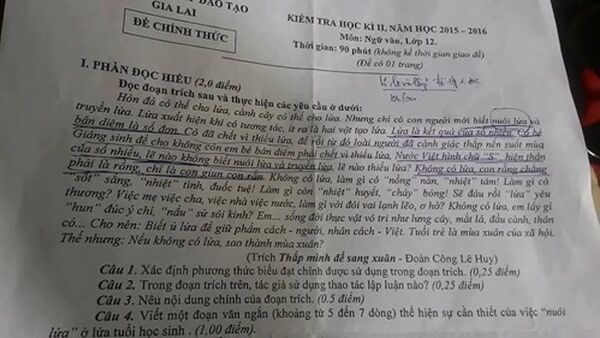 ĐÀO TẠO
GIA LAI
ĐỀ CHÍNH THỨC
KIỂM TRA HỌC KÌ II, NĂM HỌC 2015 – 2016
Môn: Ngữ văn, Lớp 12.
Thời gian: 90 phút (không kể thời gian giao đề)
(Đề có 01 trang)
I. PHẦN ĐỌC HIỂU (2,0 điểm)
Đọc đoạn trích sau và thực hiện các yêu cầu ở dưới:
Hòn đá có thể cho lửa, cành cây có thể cho lửa. Nhưng chỉ có con người mới biết nuôi lửa và
truyền lửa. Lửa xuất hiện khi có tương tác, ít ra là hai vật tạo lửa. Lửa là kết quả của số nhiều. Cô bé
bán diêm là số đơn. Cô đã chết vì thiếu lửa, để rồi từ đó loài người đã cảnh giác thắp nến suốt mùa
Giáng sinh để cho không còn em bé bán diêm nào phải chết vì thiếu lửa. Nước Việt hình chữ "S", hiện thân
của số nhiều, lẽ nào không biết nuôi lửa và truyền lửa, lẽ nào thiếu lửa? Không có lửa, con rồng chẳng
phải là rồng, chỉ là con giun con rắn. Không có lửa, làm gì có "nồng" nàn, "nhiệt" tâm! Làm gì có
"sốt" sắng, "nhiệt" tình, đuốc tuệ! Làm gì còn "nhiệt" huyết, "cháy" bỏng! Sẽ đâu rồi "lửa" yêu
thương? Việc mẹ việc cha, việc nhà việc nước, làm gì với đôi vai lạnh lẽo, ơ hờ? Không có lửa, em lấy gì
"hun" đúc ý chí, "nấu" sử sôi kinh? Em... sống đời thực vật vô tri như lưng cây, mắt lá, đầu cành, thân
cỏ... Cho nên: Biết ủ lửa để giữ phẩm cách - người, nhân cách - Việt. Tuổi trẻ là mùa xuân của xã hội.
Thế nhưng: Nếu không có lửa, sao thành mùa xuân?
(Trích Thắp mình để sang xuân - Đoàn Công Lê Huy)
Câu 1. Xác định phương thức biểu đạt chính được sử dụng trong đoạn trích. (0,25 điểm)
Câu 2. Trong đoạn trích trên, tác giả sử dụng thao tác lập luận nào? (0,25 điểm)
Câu 3. Nêu nội dung chính của đoạn trích. (0.5 điểm)
Câu 4. Viết một đoạn văn ngắn (khoảng từ 5 đến 7 dòng) thể hiện sự cần thiết của việc "nuôi
lửa" ở lứa tuổi học sinh . (1,00 điểm).